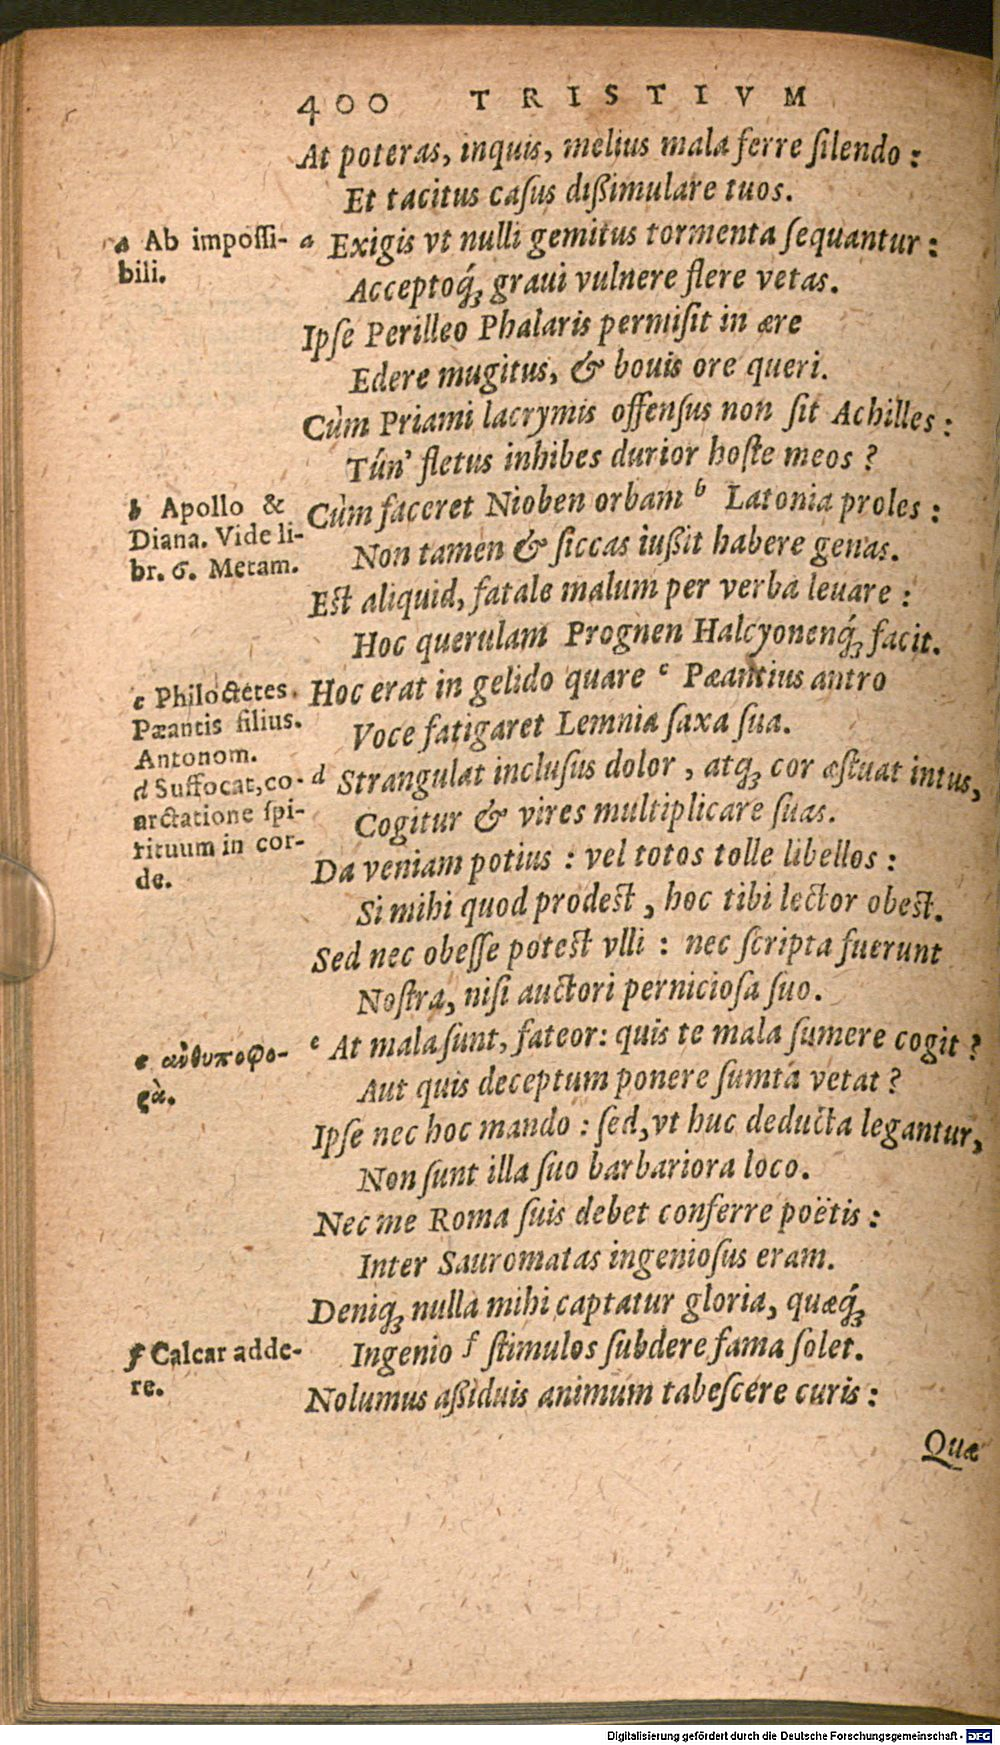 400 TRISTIVM
At poteras, inquis, melius mala ferre ſilendo :
Et tacitus caſus dißimulare tuos.
a Ab impoſſi-
bili.
a Exigis vt nulli gemitus tormenta ſequantur :
Acceptoq́ꝫ graui vulnere flere vetas.
Ipſe Perilleo Phalaris permiſit in ære
Edere mugitus, & bouis ore queri.
Cùm Priami lacrymis offenſus non ſit Achilles :
Tún' fletus inhibes durior hoſte meos ?
b Apollo &
Diana. Vide li-
br. 6. Metam.
Cùm faceret Nioben orbam b Latonia proles :
Non tamen & ſiccas iußit habere genas.
Est aliquid, fatale malum per verba leuare :
Hoc querulam Prognen Halcyonenq́ꝫ facit.
c Philoctetes
Pæantis filius.
Antonom.
Hoc erat in gelido quare c Pæantius antro
Voce fatigaret Lemnia ſaxa ſua.
d Suffocat, co-
arctatione ſpi-
rituum in cor-
de.
d Strangulat incluſus dolor, atqꝫ cor æſtuat intus,
Cogitur & vires multiplicare ſuas.
Da veniam potius : vel totos tolle libellos :
Si mihi quod prodest, hoc tibi lector obest.
Sed nec obeſſe potest vlli : nec ſcripta fuerunt
Noſtra, niſi auctori pernicioſa ſuo.
e ἀνθυποφο-
ρὰ.
e At mala ſunt, fateor: quis te mala ſumere cogit ?
Aut quis deceptum ponere ſumta vetat ?
Ipſe nec hoc mando : ſed, vt huc deducta legantur,
Non ſunt illa ſuo barbariora loco.
Nec me Roma ſuis debet conferre poëtis :
Inter Sauromatas ingenioſus eram.
Deniqꝫ nulla mihi captatur gloria, quæq́ꝫ
f Calcar adde-
re.
Ingenio f ſtimulos ſubdere fama ſolet.
Nolumus aßiduis animum tabeſcere curis :
Quæ
Digitalisierung gefördert durch die Deutsche Forschungsgemeinschaft - DFG